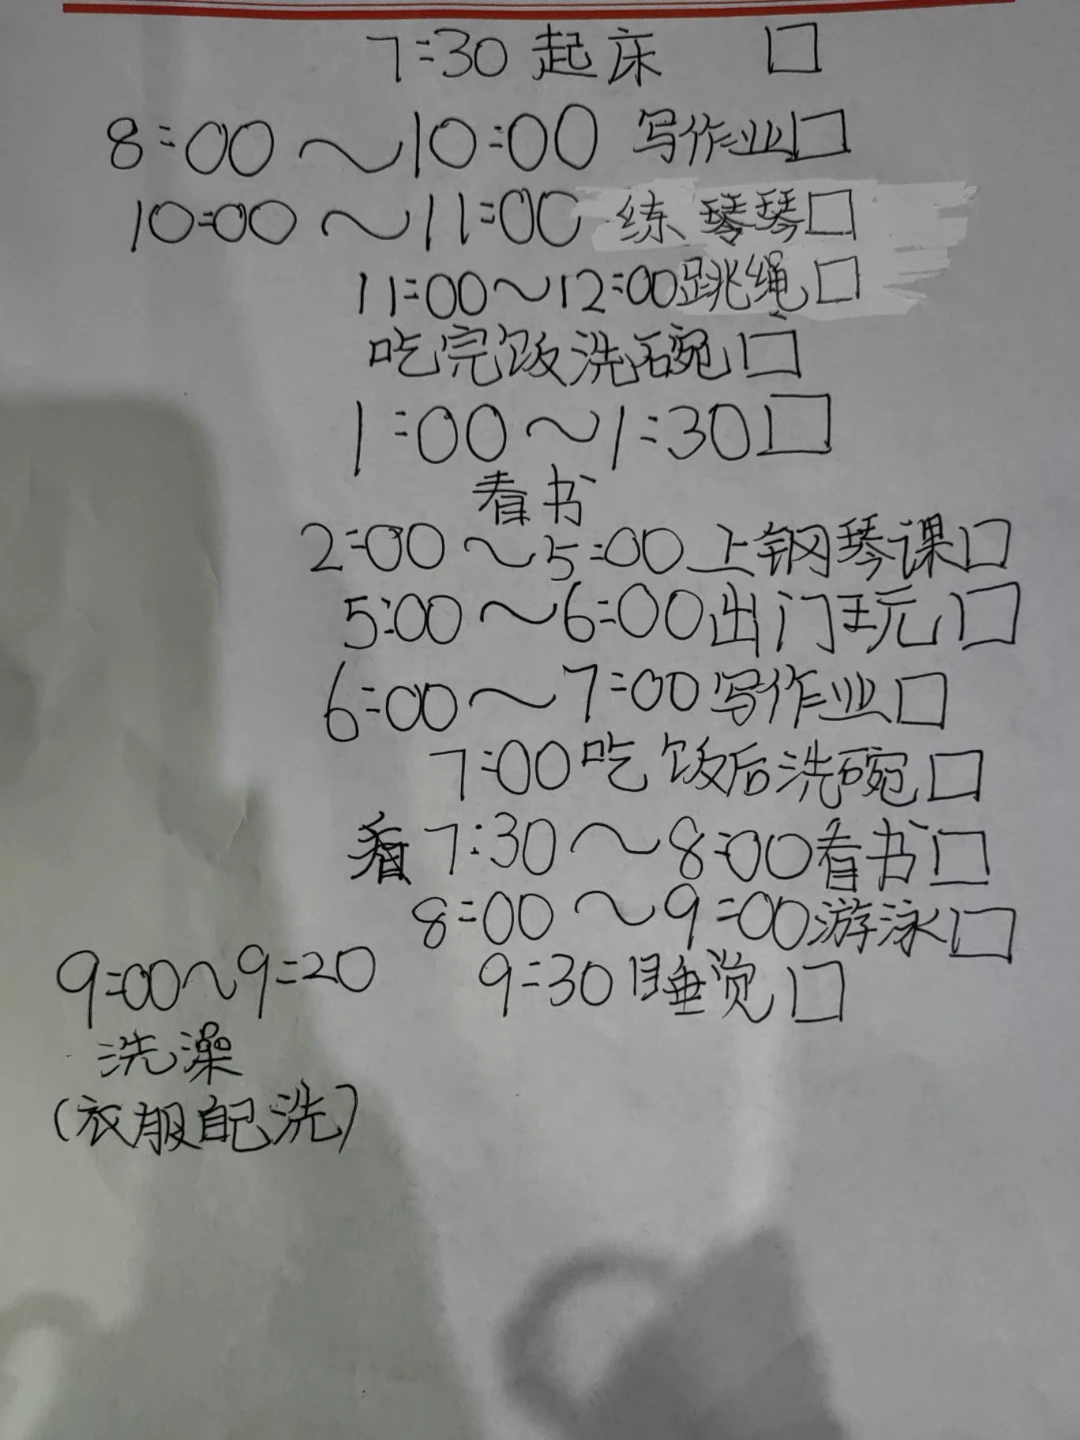 7:30 起床 □
8:00～10:00 写作业□
10:00～11:00 练琴琴□
11:00～12:00跳绳□
吃完饭洗碗□
1:00～1:30□
看书
2:00～5:00上钢琴课□
5:00～6:00出门玩□
6:00～7:00写作业□
7:00吃饭后洗碗□
看 7:30～8:00看书□
8:00～9:00游泳□
9:00～9:20 9:30睡觉□
洗澡
(衣服自己洗)